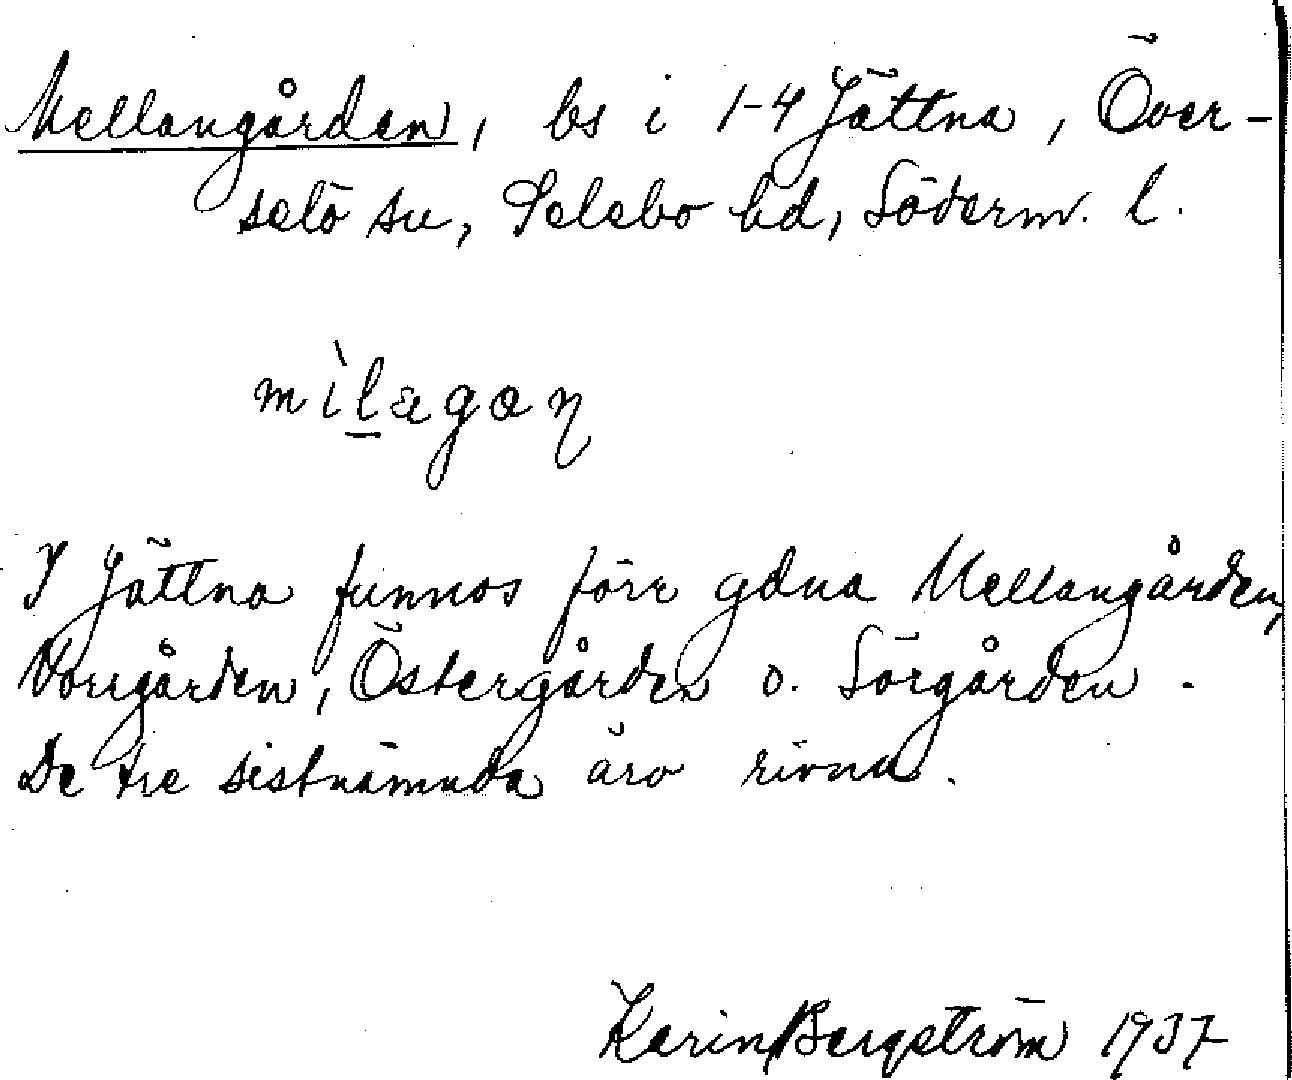 Mellangården, bs i 1-4 Jättna, Över-
selö sn, Selebo hd, Söderm. l.
mìlagoɳ
I Jättna funnos förr gdna Mellangården,
Norrgården, Östergården o. Sörgården.
De tre sistnämnda äro rivna.
Karin Bergström 1937